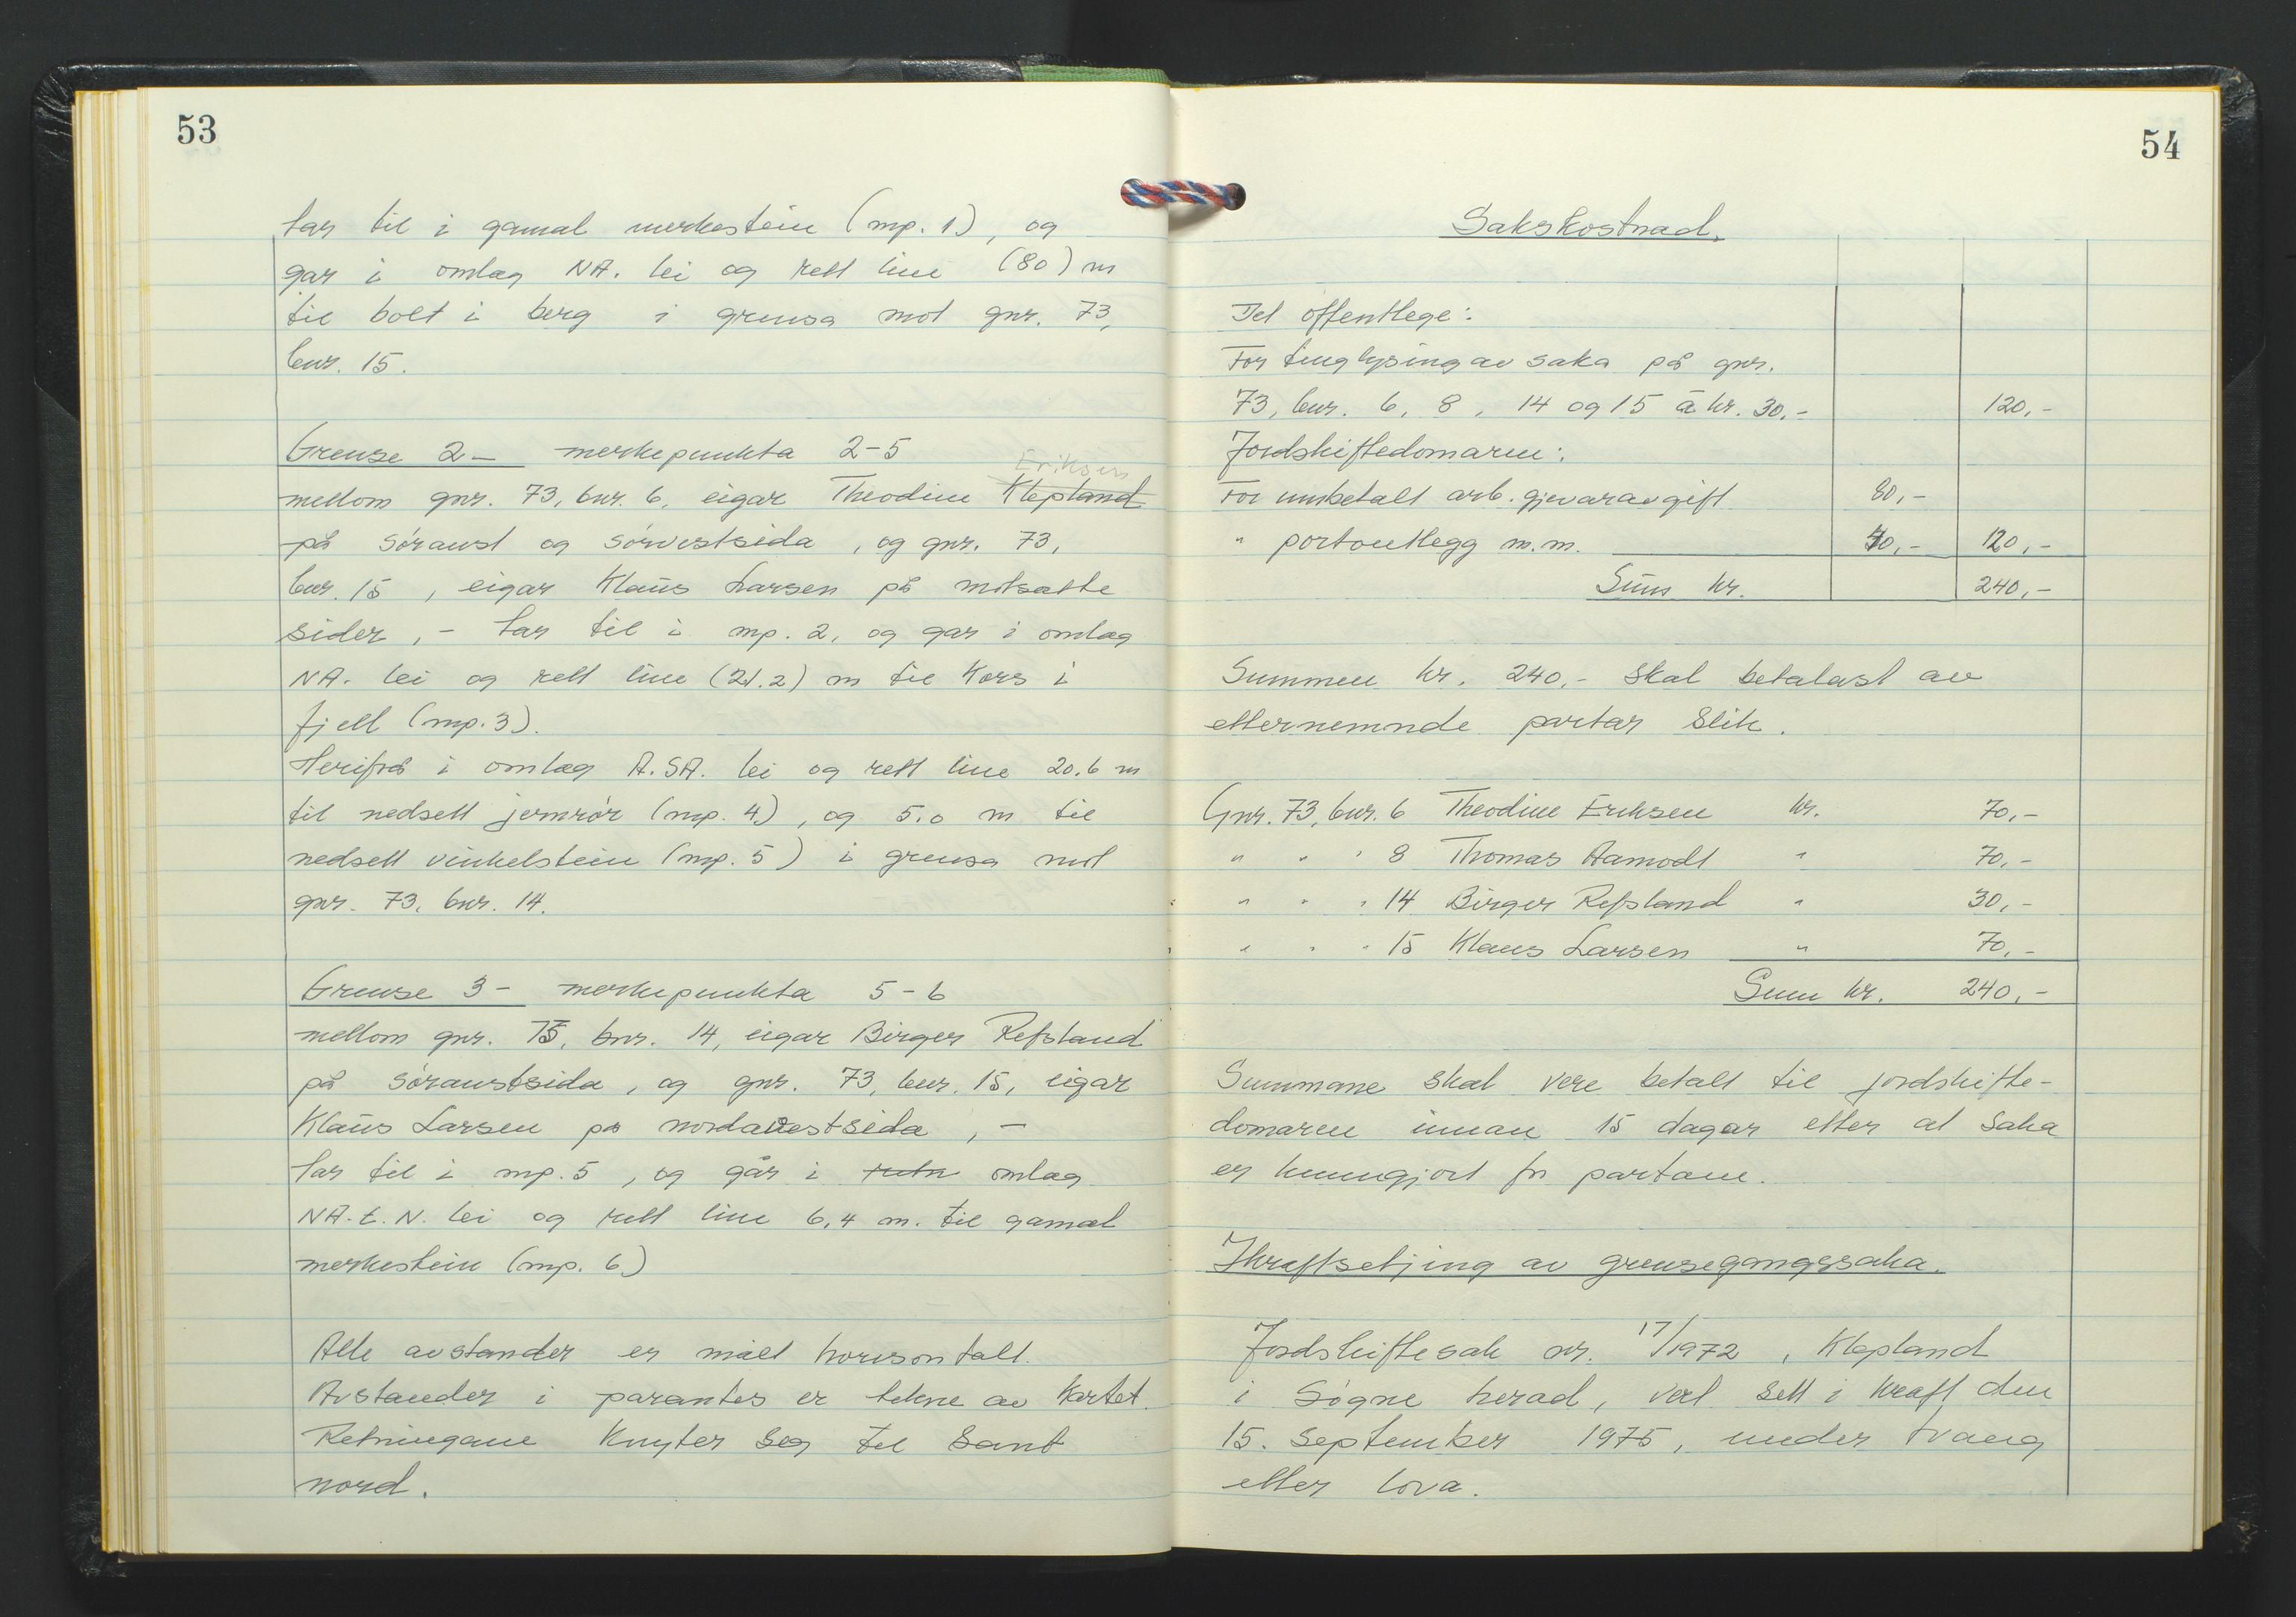 53
tar til i gamal merkestein (mp. 1), og
gar i omlag NA. lei og rett line (80) m
til bolt i berg i grensa mot gnr. 73,
bnr. 15.
Grense 2 - merkepunkta 2-5
Eriksen
mellom gnr. 73, bnr. 6, eigar Theodine Klepland
på søraust og sørvestsida, og gnr. 73,
bnr. 15, eigar Klaus Larsen på motsatte
sider, - tar til i mp. 2, og gar i omlag
NA. lei og rett line (21.2) m til kors i
fjell (mp. 3).
Herifrå i omlag A.SA. lei og rett line 20.6 m
til nedsett jernrør (mp. 4), og 5.0 m til
nedsett vinkelstein (mp. 5) i grensa mot
gnr. 73, bnr. 14.
Grense 3 - merkepunkta 5-6
mellom gnr. 73, bnr. 14, eigar Birger Refsland
på søraustsida, og gnr. 73, bnr. 15, eigar
Klaus Larsen på nordvestsida, -
tar til i mp. 5, og går i omlag
NA.t.N. lei og rett line 6,4 m. til gamal
merkestein (mp. 6)
Alle avstander er målt horisontalt.
Avstander i parantes er tekne av kartet.
Retningane knyter seg til sant
nord.
54
Sakskostnad.
Det offentlege:
For tinglysing av saka på gnr.
73, bnr. 6, 8, 14 og 15 à kr. 30,- 120,-
Jordskiftedomaren:
For umbetalt arb.gjevaravgift 80,-
" portoutlegg m.m. 40,- 120,-
Sum kr. 240,-
Summen kr. 240,- skal betalast av
etternemnde partar slik.
Gnr. 73, bnr. 6 Theodine Eriksen kr. 70,-
" " " 8 Thomas Aamodt " 70,-
" " " 14 Birger Refsland " 30,-
" " " 15 Klaus Larsen " 70,-
Sum kr. 240,-
Summane skal vere betalt til jordskifte-
domaren innan 15 dagar etter at saka
er kunngjort for partane.
Ikraftsetjing av grensegangssaka.
Jordskiftesak nr. 17/1972, Klepland
i Søgne herad, vert sett i kraft den
15. september 1975, under tvang
etter lova.